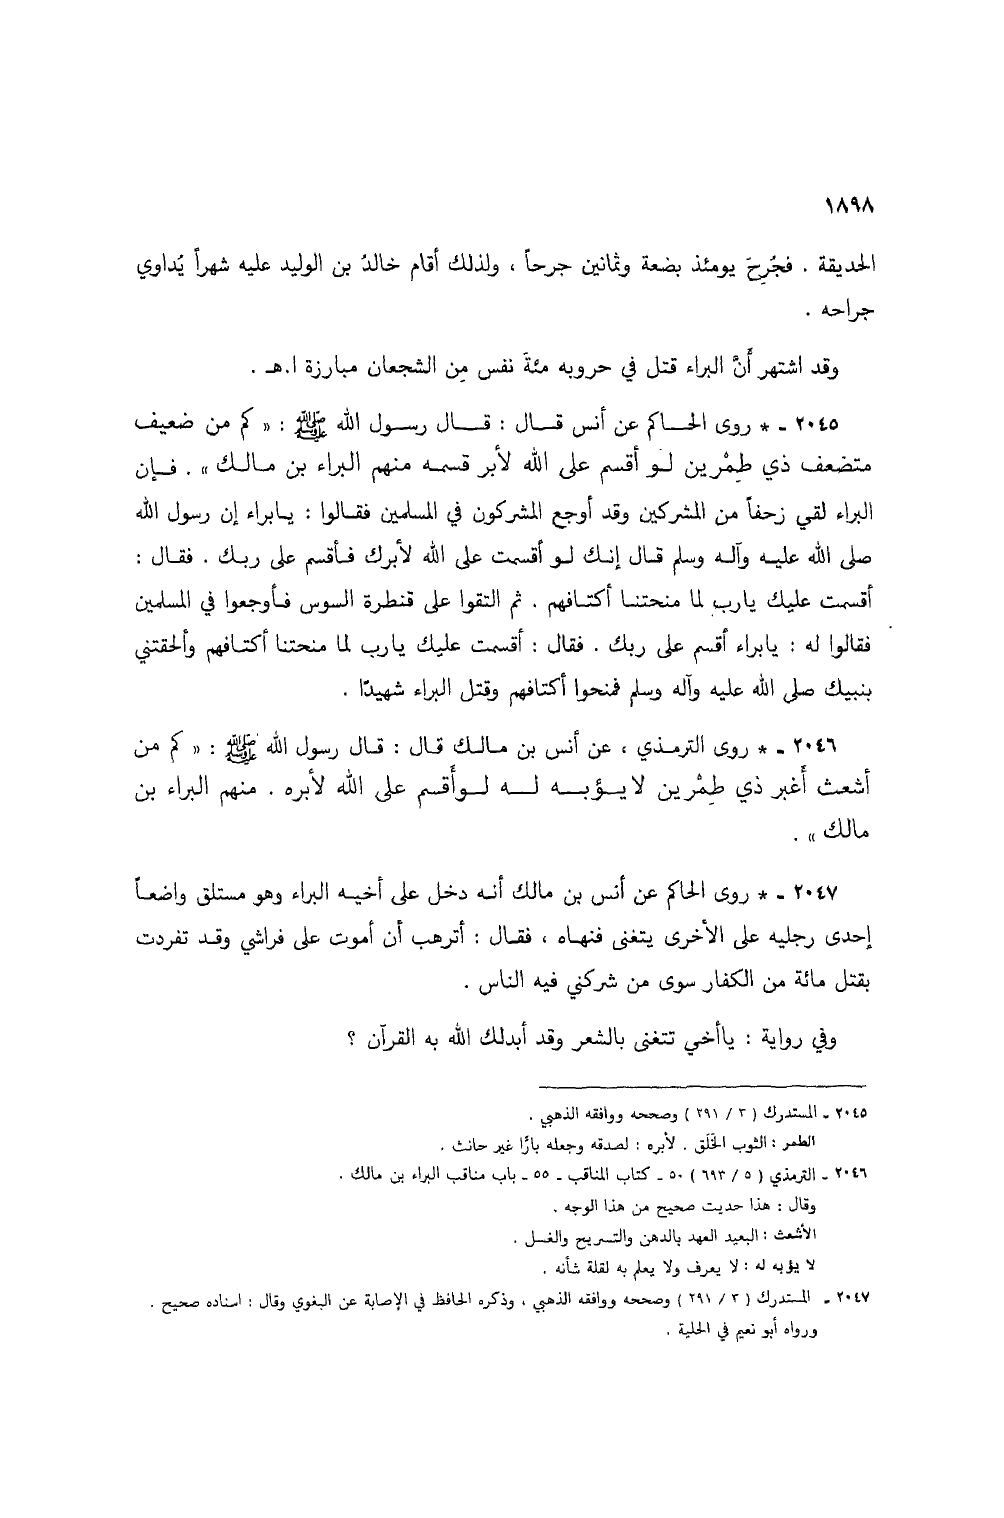 ١٨٩٨
الحديقة . فجُرِحَ يومئذ بضعة وثمانين جرحاً ، ولذلك أقام خالدُ بن الوليد عليه شهراً يُداوي
جراحه .
وقد اشتهر أَنَّ البراء قتل في حروبه مئةَ نفس مِن الشجعان مبارزة ا.هـ .
٢٠٤٥ ـ * روى الحاكم عن أنس قال : قال رسول الله ﷺ : « كم من ضعيف
متضعف ذي طِمْرين لو أقسم على الله لأبر قسمه منهم البراء بن مالك » . فإن
البراء لقي زحفاً من المشركين وقد أوجع المشركون في المسلمين فقالوا : يابراء إن رسول الله
صلى الله عليه وآله وسلم قال إنك لو أقسمت على الله لأبرك فأقسم على ربك . فقال :
أقسمت عليك يارب لما منحتنا أكتافهم . ثم التقوا على قنطرة السوس فأوجعوا في المسلمين
فقالوا له : يابراء أقسم على ربك . فقال : أقسمت عليك يارب لما منحتنا أكتافهم وألحقتني
بنبيك صلى الله عليه وآله وسلم فمنحوا أكتافهم وقتل البراء شهيدًا .
٢٠٤٦ ـ * روى الترمذي ، عن أنس بن مالك قال : قال رسول الله ﷺ : « كم من
أشعث أَغبر ذي طِمْرين لايؤبه له لوأَقسم على الله لأبره . منهم البراء بن
مالك » .
٢٠٤٧ ـ * روى الحاكم عن أنس بن مالك أنه دخل على أخيه البراء وهو مستلق واضعاً
إحدى رجليه على الأخرى يتغنى فنهاه ، فقال : أترهب أن أموت على فراشي وقد تفردت
بقتل مائة من الكفار سوى من شركني فيه الناس .
وفي رواية : ياأخي تتغنى بالشعر وقد أبدلك الله به القرآن ؟
٢٠٤٥ ـ المستدرك ( ٣ / ٢٩١ ) وصححه ووافقه الذهبي .
الطمر : الثوب الخَلَق . لأبره : لصدقه وجعله بارًا غير حانث .
٢٠٤٦ ـ الترمذي ( ٥ / ٦٩٣ ) ٥٠ ـ كتاب المناقب ـ ٥٥ ـ باب مناقب البراء بن مالك .
وقال : هذا حديث صحيح من هذا الوجه .
الأشعث : البعيد العهد بالدهن والتسريح والغسل .
لا يؤبه له : لا يعرف ولا يعلم به لقلة شأنه .
٢٠٤٧ ـ المستدرك ( ٣ / ٢٩١ ) وصححه ووافقه الذهبي ، وذكره الحافظ في الإصابة عن البغوي وقال : اسناده صحيح .
ورواه أبو نعيم في الحلية .